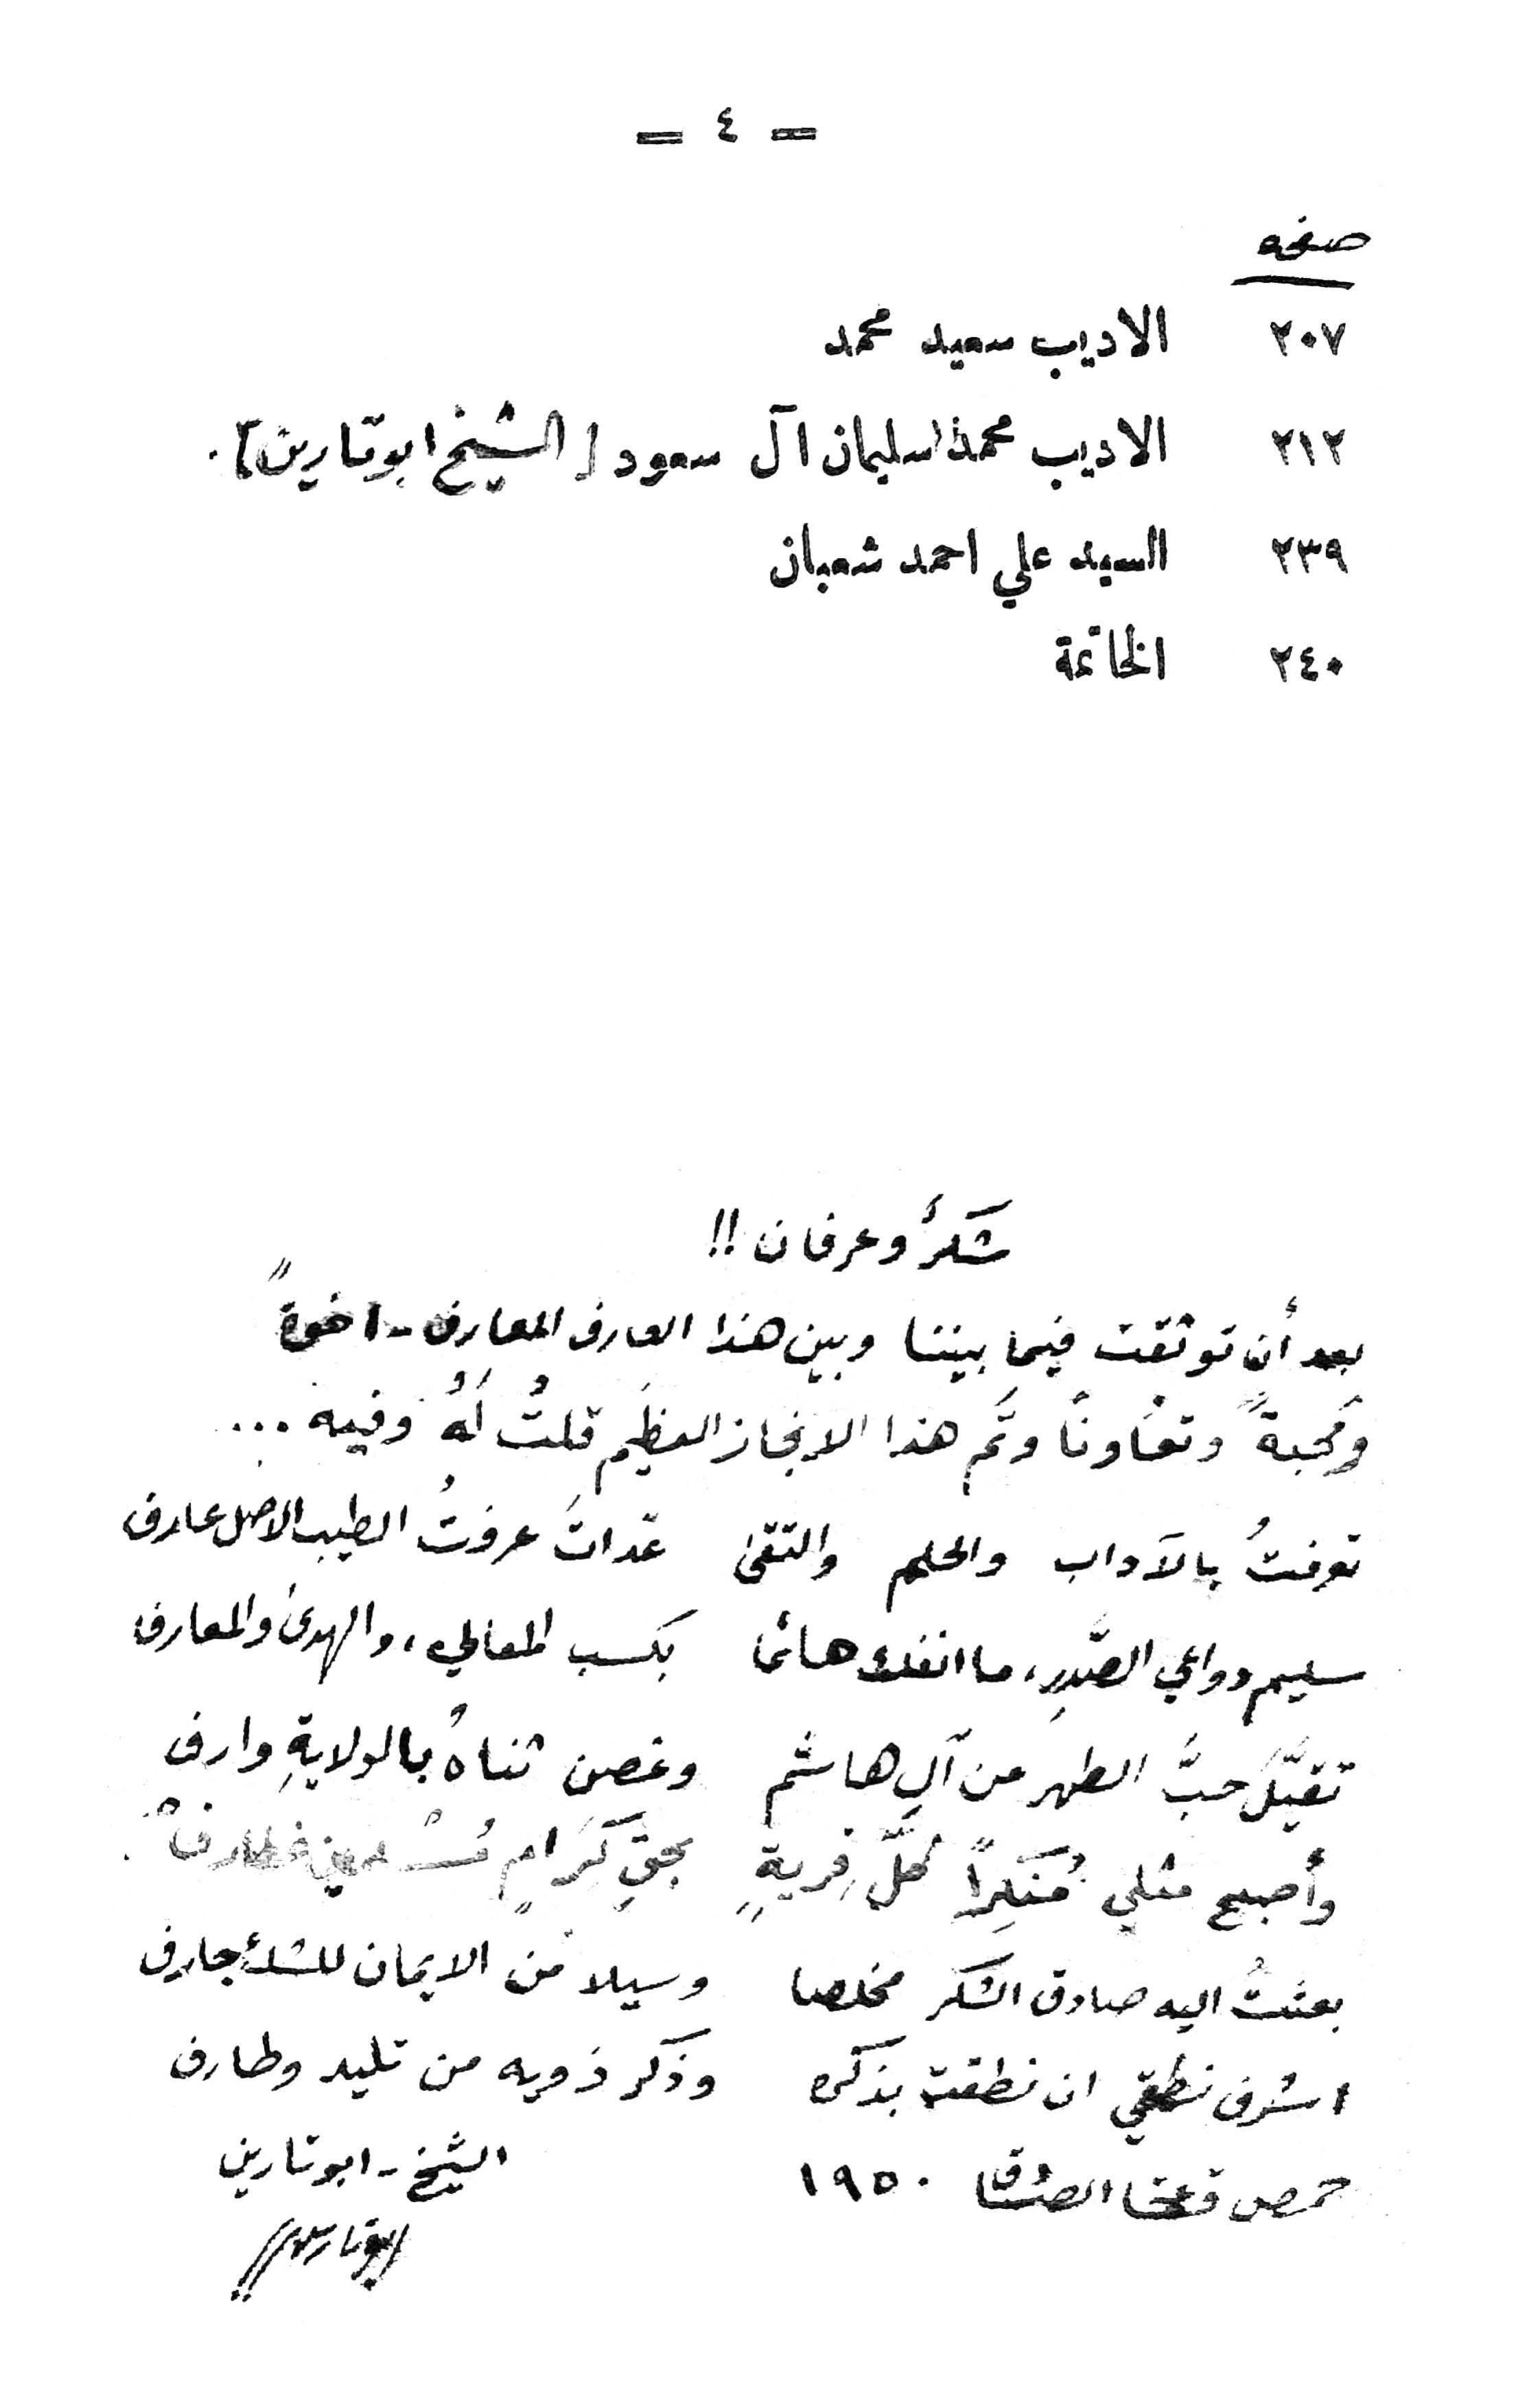 = ٤ =
صفحه
٢٠٧ الاديب سعيد محمد
٢١٢ الاديب محمد سليمان آل سعود [الشيخ ابو تارين].
٢٣٩ السيد علي احمد شعبان
٢٤٠ الخاتمة
شكراً وعرفان !!
بعد أن توثقت فيما بيننا وبين هذا العارف المعارف - اخوةً
ومحبةً وتعاوناً وتم هذا الانجاز العظيم قلتُ لهُ وفيه ...
بالآداب والحلم والتقى عرفتُ الطيب الاصل عارف
سليم دواعي الصدرِ، ما انفك هائما بكسب المعالي، والهدى والمعارف
تقبَّلَ حبَّ الطهر من آلِ هاشم وغصن ثناهُ بالولايةِ وارف
وأصبح مثلي مُنكِراً كلَّ فريةٍ بحقِ كرامٍ
بعثتُ اليه صادق الشكر مخلصا وسيلا من الايمان للشك جارف
اشرف نطقي ان نطقت بذكره وذكر ذويه من تليد وطارف
حمص ١٩٥٠ الشيخ - ابو تارين